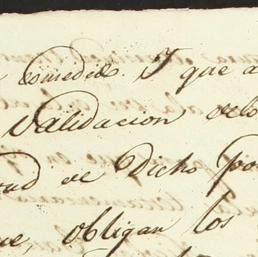 comedido. Y que a
validacion delo
tud de Dicho po
ue, obligan los